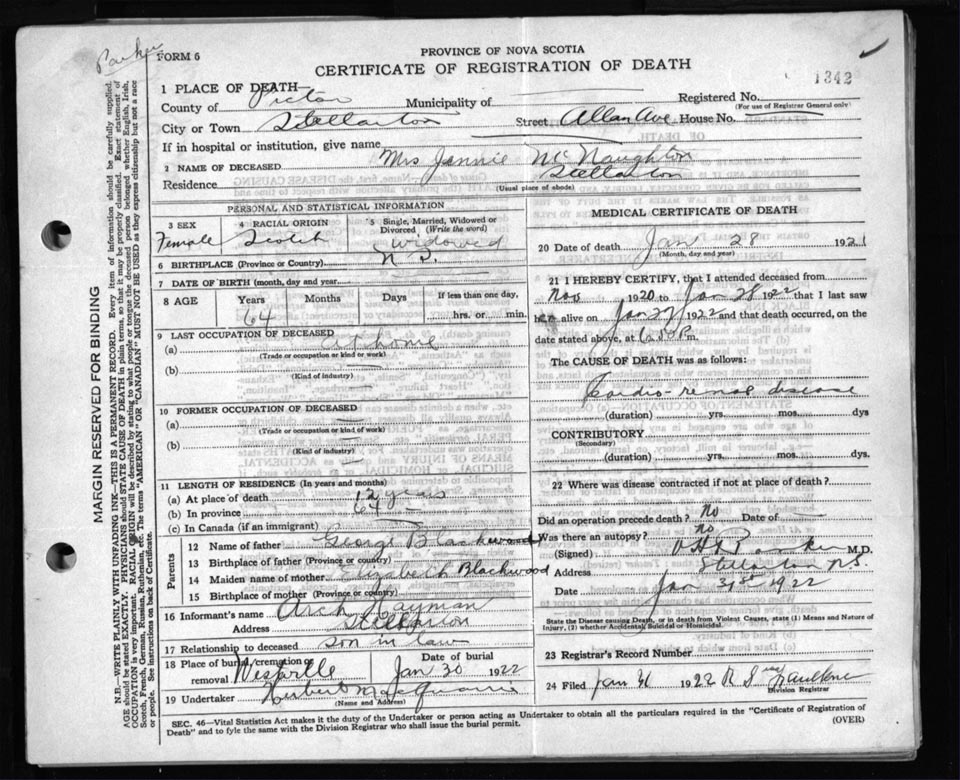 Parker
FORM 6
PROVINCE OF NOVA SCOTIA
CERTIFICATE OF REGISTRATION OF DEATH
1342
1 PLACE OF DEATH
County of Pictou Municipality of Registered No.
(For use of Registrar General only)
City or Town Stellarton Street Allan Ave House No.
If in hospital or institution, give name
2 NAME OF DECEASED Mrs Jennie McNaughton
Residence Stellarton
(Usual place of abode)
PERSONAL AND STATISTICAL INFORMATION
3 SEX Female
4 RACIAL ORIGIN Scotch
5 Single, Married, Widowed or Divorced (Write the word) Widowed
6 BIRTHPLACE (Province or Country) N S.
7 DATE OF BIRTH (month, day and year)
8 AGE Years Months Days If less than one day,
64 hrs. or min.
9 LAST OCCUPATION OF DECEASED
(a) at home
(Trade or occupation or kind or work)
(b)
(Kind of industry)
10 FORMER OCCUPATION OF DECEASED
(a)
(Trade or occupation or kind of work)
(b)
(Kind of industry)
11 LENGTH OF RESIDENCE (In years and months)
(a) At place of death 12 years
(b) In province 64
(c) In Canada (if an immigrant)
Parents
12 Name of father George Blackwood
13 Birthplace of father (Province or country)
14 Maiden name of mother Elizabeth Blackwood
15 Birthplace of mother (Province or country)
16 Informant's name Arch Hayman
Address Stellarton
17 Relationship to deceased son in law
18 Place of burial, cremation or removal Westville
Date of burial Jan 30 1922
19 Undertaker Herbert MacQuarrie
(Name and Address)
MEDICAL CERTIFICATE OF DEATH
20 Date of death Jan 28 1921
(Month, day and year)
21 I HEREBY CERTIFY, that I attended deceased from
Nov 1920 to Jan 28 1922 that I last saw
her alive on Jan 27 1922 and that death occurred, on the
date stated above, at m.
The CAUSE OF DEATH was as follows:
Cardio-renal disease
(duration) yrs. mos. dys
CONTRIBUTORY
(Secondary)
(duration) yrs. mos. dys.
22 Where was disease contracted if not at place of death?
Did an operation precede death? No Date of
Was there an autopsy? No
(Signed) Parker M.D.
Address Stellarton N.S.
Date Jan 31st 1922
State the Disease causing Death, or in death from Violent Causes, state (1) Means and Nature of
Injury, (2) whether Accidental, Suicidal or Homicidal.
23 Registrar's Record Number
24 Filed Jan 31 1922 R S Faulkner
Division Registrar
SEC. 46—Vital Statistics Act makes it the duty of the Undertaker or person acting as Undertaker to obtain all the particulars required in the "Certificate of Registration of
Death" and to fyle the same with the Division Registrar who shall issue the burial permit.
(OVER)
MARGIN RESERVED FOR BINDING
N.B.—WRITE PLAINLY WITH UNFADING INK—THIS IS A PERMANENT RECORD. Every item of information should be carefully supplied.
AGE should be stated EXACTLY. PHYSICIANS should STATE CAUSE OF DEATH in plain terms, so that it may be properly classified. Exact statement of
OCCUPATION is very important. RACIAL ORIGIN will be described by stating to what people or tongue the deceased person belonged whether English, Irish,
Scotch, French, German, Russian, Ruthenian, etc. The terms "AMERICAN" OR "CANADIAN" MUST NOT BE USED as they express citizenship but not a race
or people. See instructions on back of Certificate.